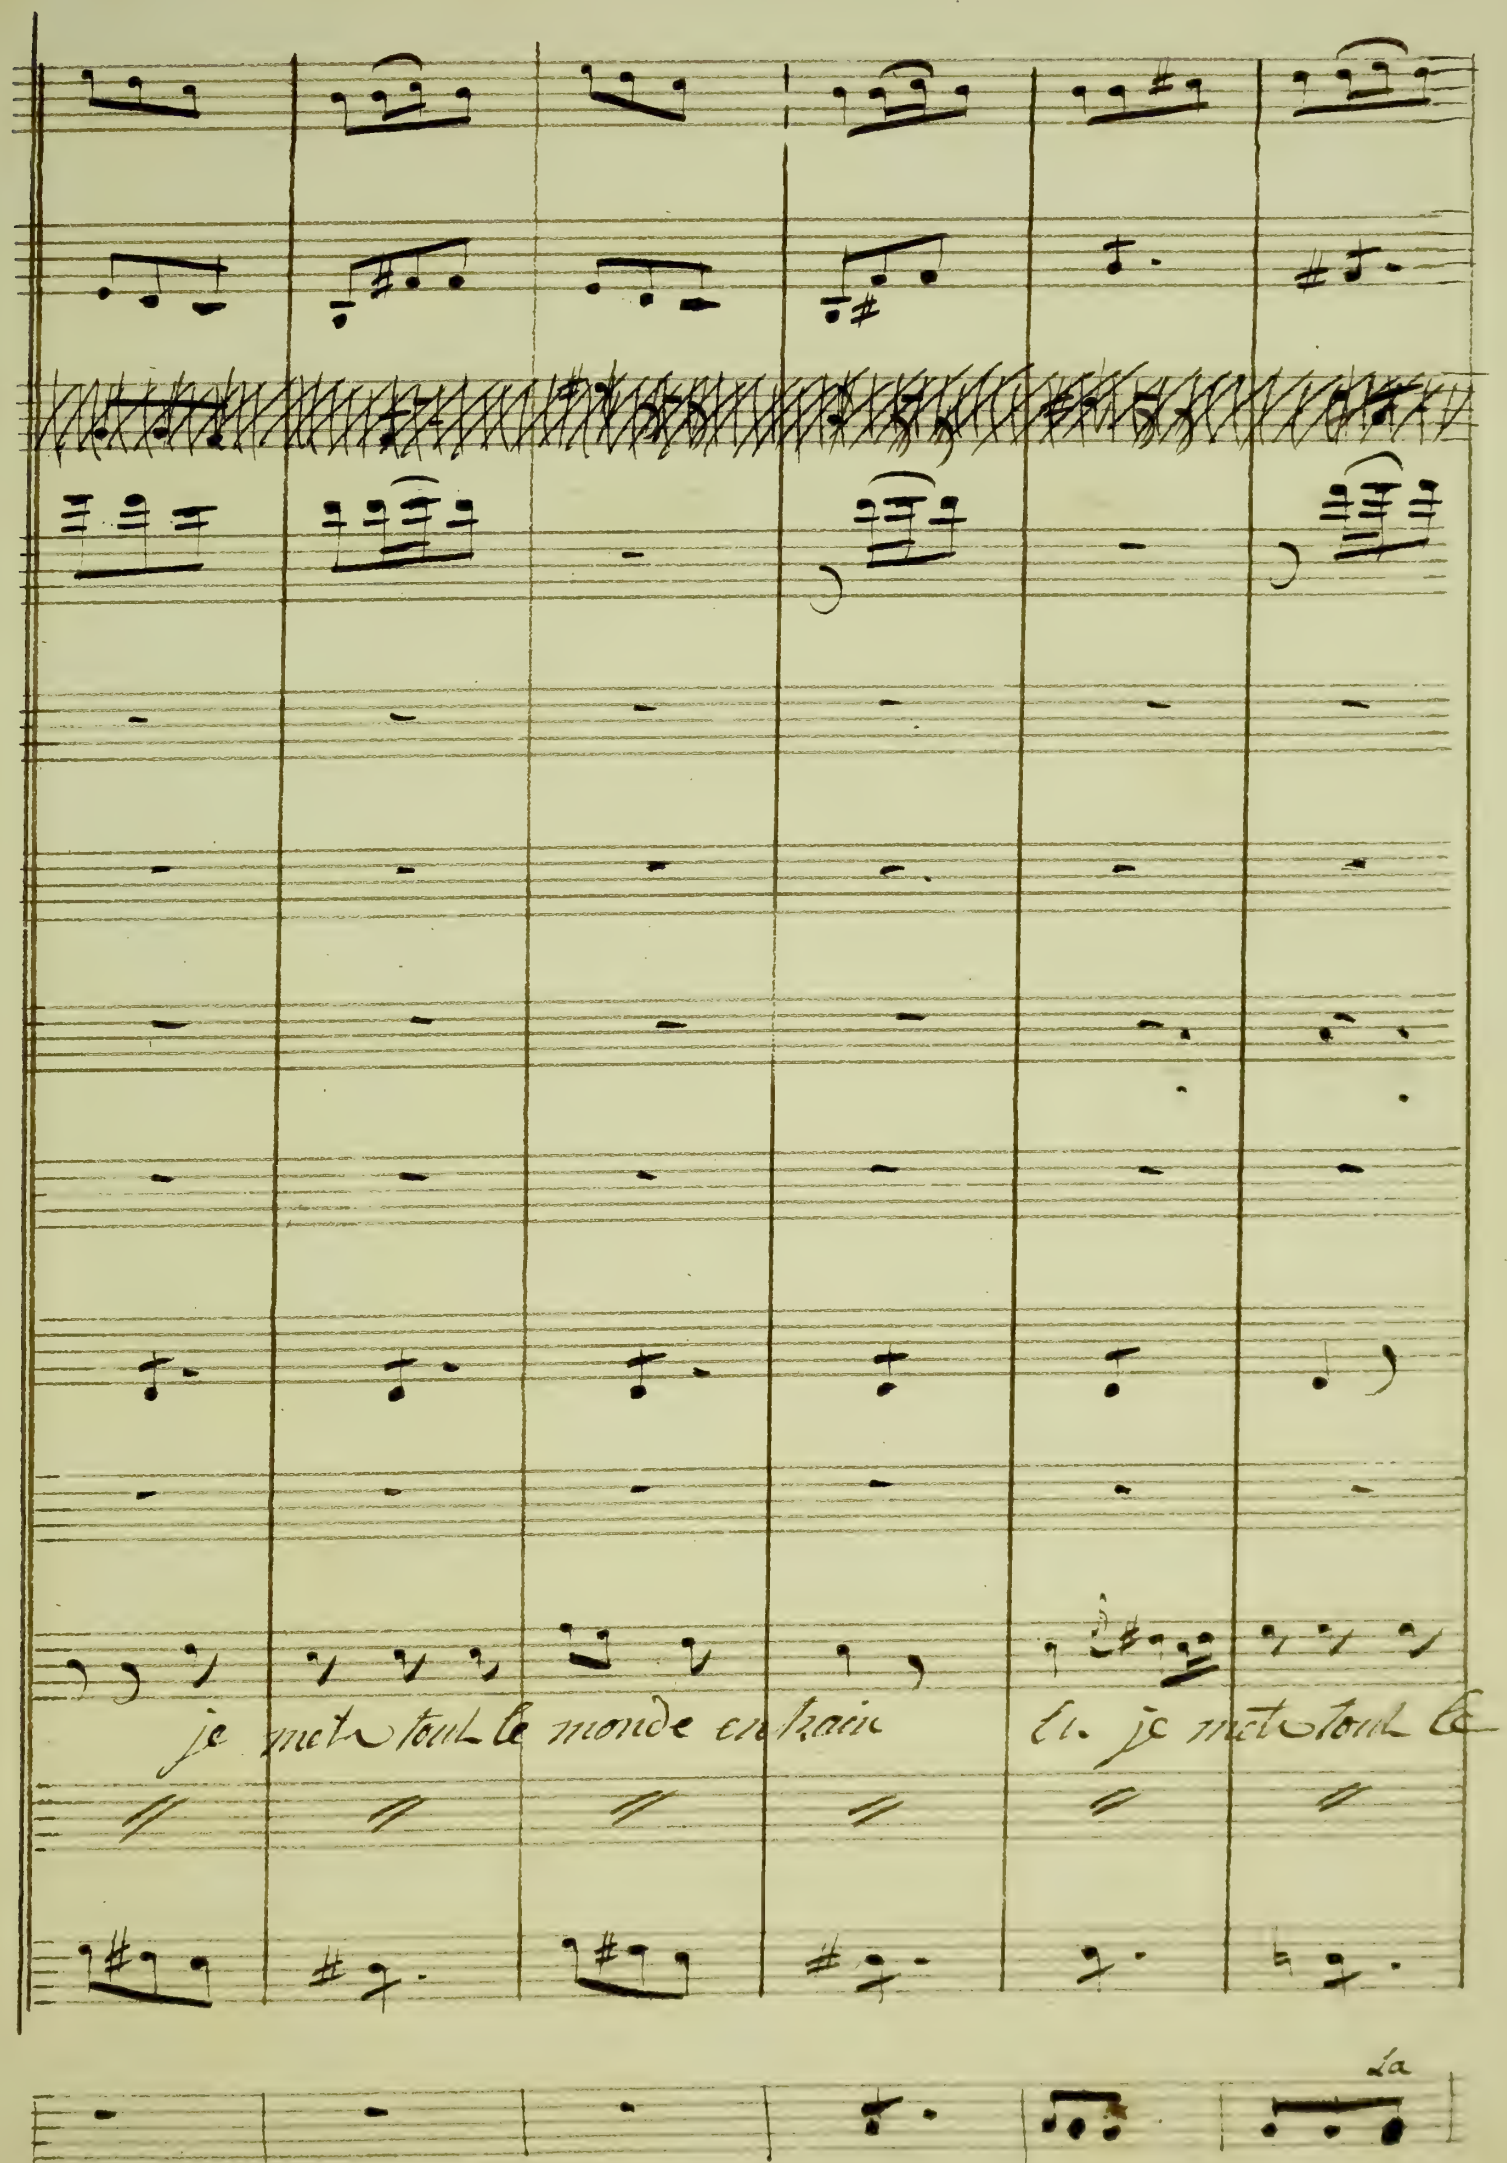 je mets tout le monde en train En je mets tout le
La